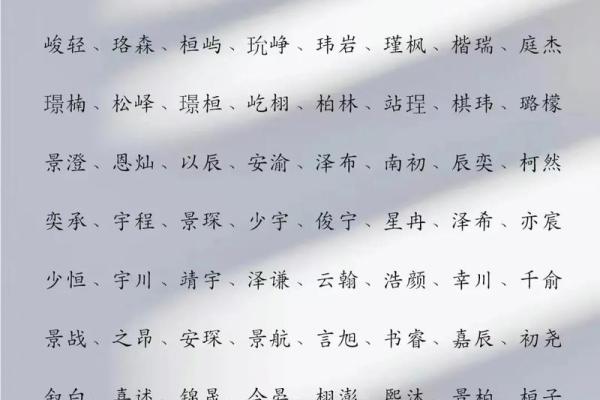 峻轻、珞森、桓屿、玧峥、玮岩、瑾枫、楷瑞、庭杰
璟楠、松峄、璟桓、屹栩、柏林、站珵、棋玮、璐檬
景澄、恩灿、以辰、安渝、泽布、南初、辰奕、柯然
奕承、宇程、景琛、少宇、俊宁、星冉、泽希、亦宸
少恒、宇川、靖宇、泽谦、云翰、浩颜、幸川、千俞
景战、之昂、安琛、景航、言旭、书睿、嘉辰、初尧
叙白、嘉述、锦晟、今晏、栩澎、熙沐、景柏、桓子